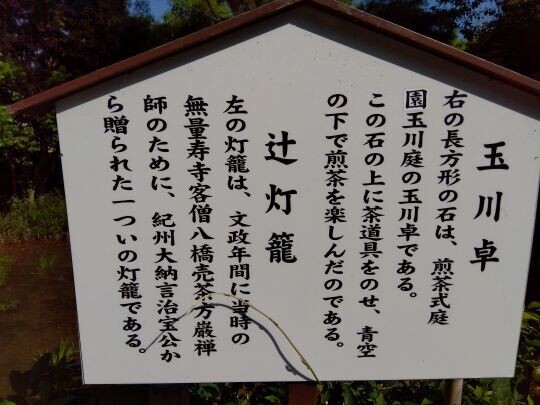 玉川卓
右の長方形の石は、煎茶式庭
園玉川庭の玉川卓である。
この石の上に茶道具をのせ、青空
の下で煎茶を楽しんだのである。
辻灯籠
左の灯籠は、文政年間に当時の
無量寿寺客僧八橋売茶方巌禅
師のために、紀州大納言治宝公か
ら贈られた一ついの灯籠である。